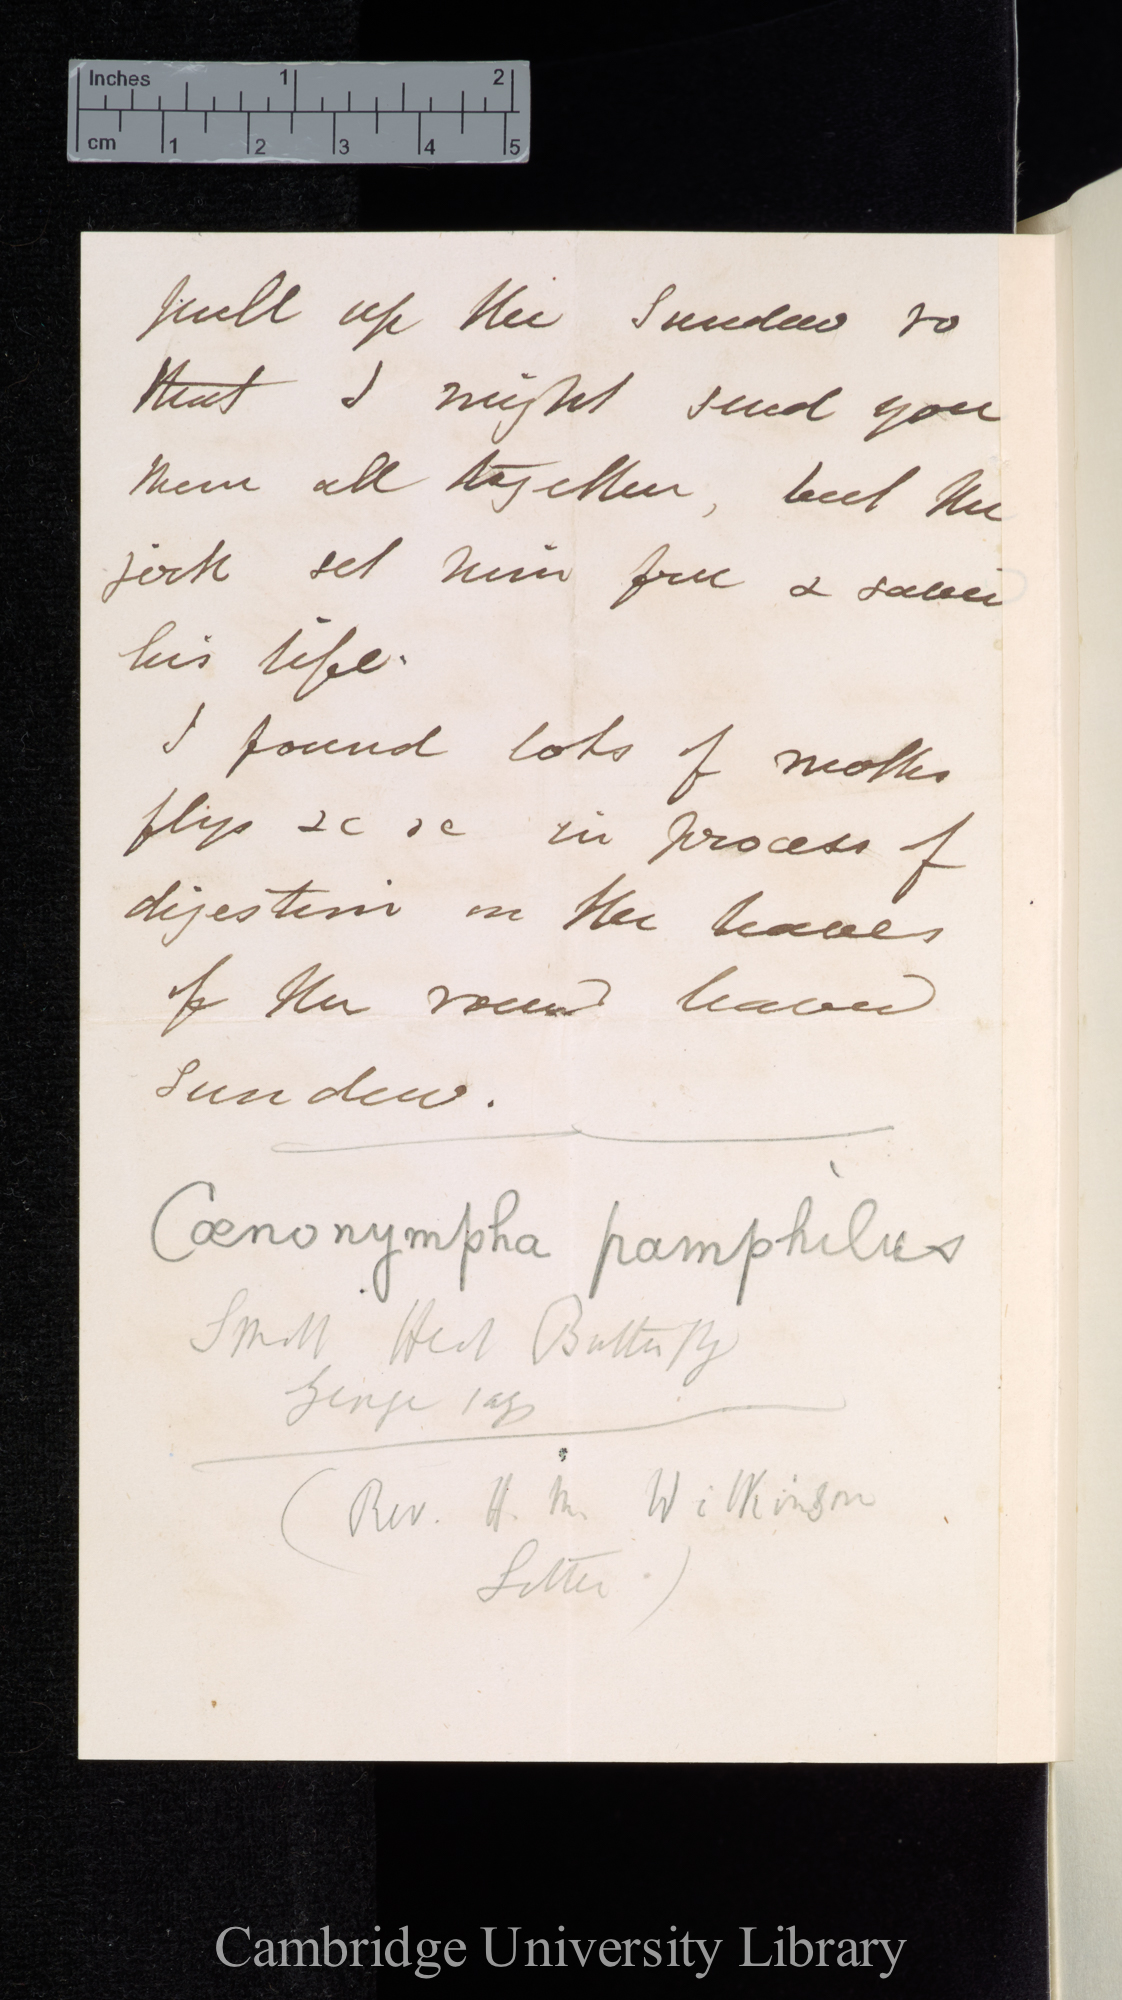 Inches 1 2
cm 1 2 3 4 5
pull up the Sundew so
that I might send you
them all together, but the
jerk set him free & saved
his life.
I found lots of moths
flys &c &c in process of
digestion on the leaves
of the round leaved
Sundew.
Cœnonympha pamphilus
Small Heath Butterfly
George says
(Rev. H. M. Wilkinson
Letter.)
Cambridge University Library